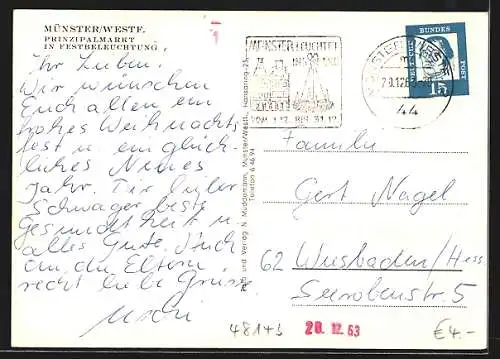 MÜNSTER/WESTF.
PRINZIPALMARKT
IN FESTBELEUCHTUNG
Ihr Lieben!
Wir wünschen
Euch allen ein
frohes Weihnachts
fest u. ein glück-
liches Neues
Jahr.
Schwager beste
Gesundheit u.
alles Gute. Auch
an die Eltern
recht liebe Grüsse
MÜNSTER LEUCHTET
VOM 1.12. BIS 31.12.
44
DEUTSCHE BUNDESPOST
15
und Verlag N. Muddemann, Münster/Westf.
Telefon 4 46 94
Familie
Gert Nagel
62 Wiesbaden/Hess
Seerobenstr. 5
481+3
20.12.63
€4.-